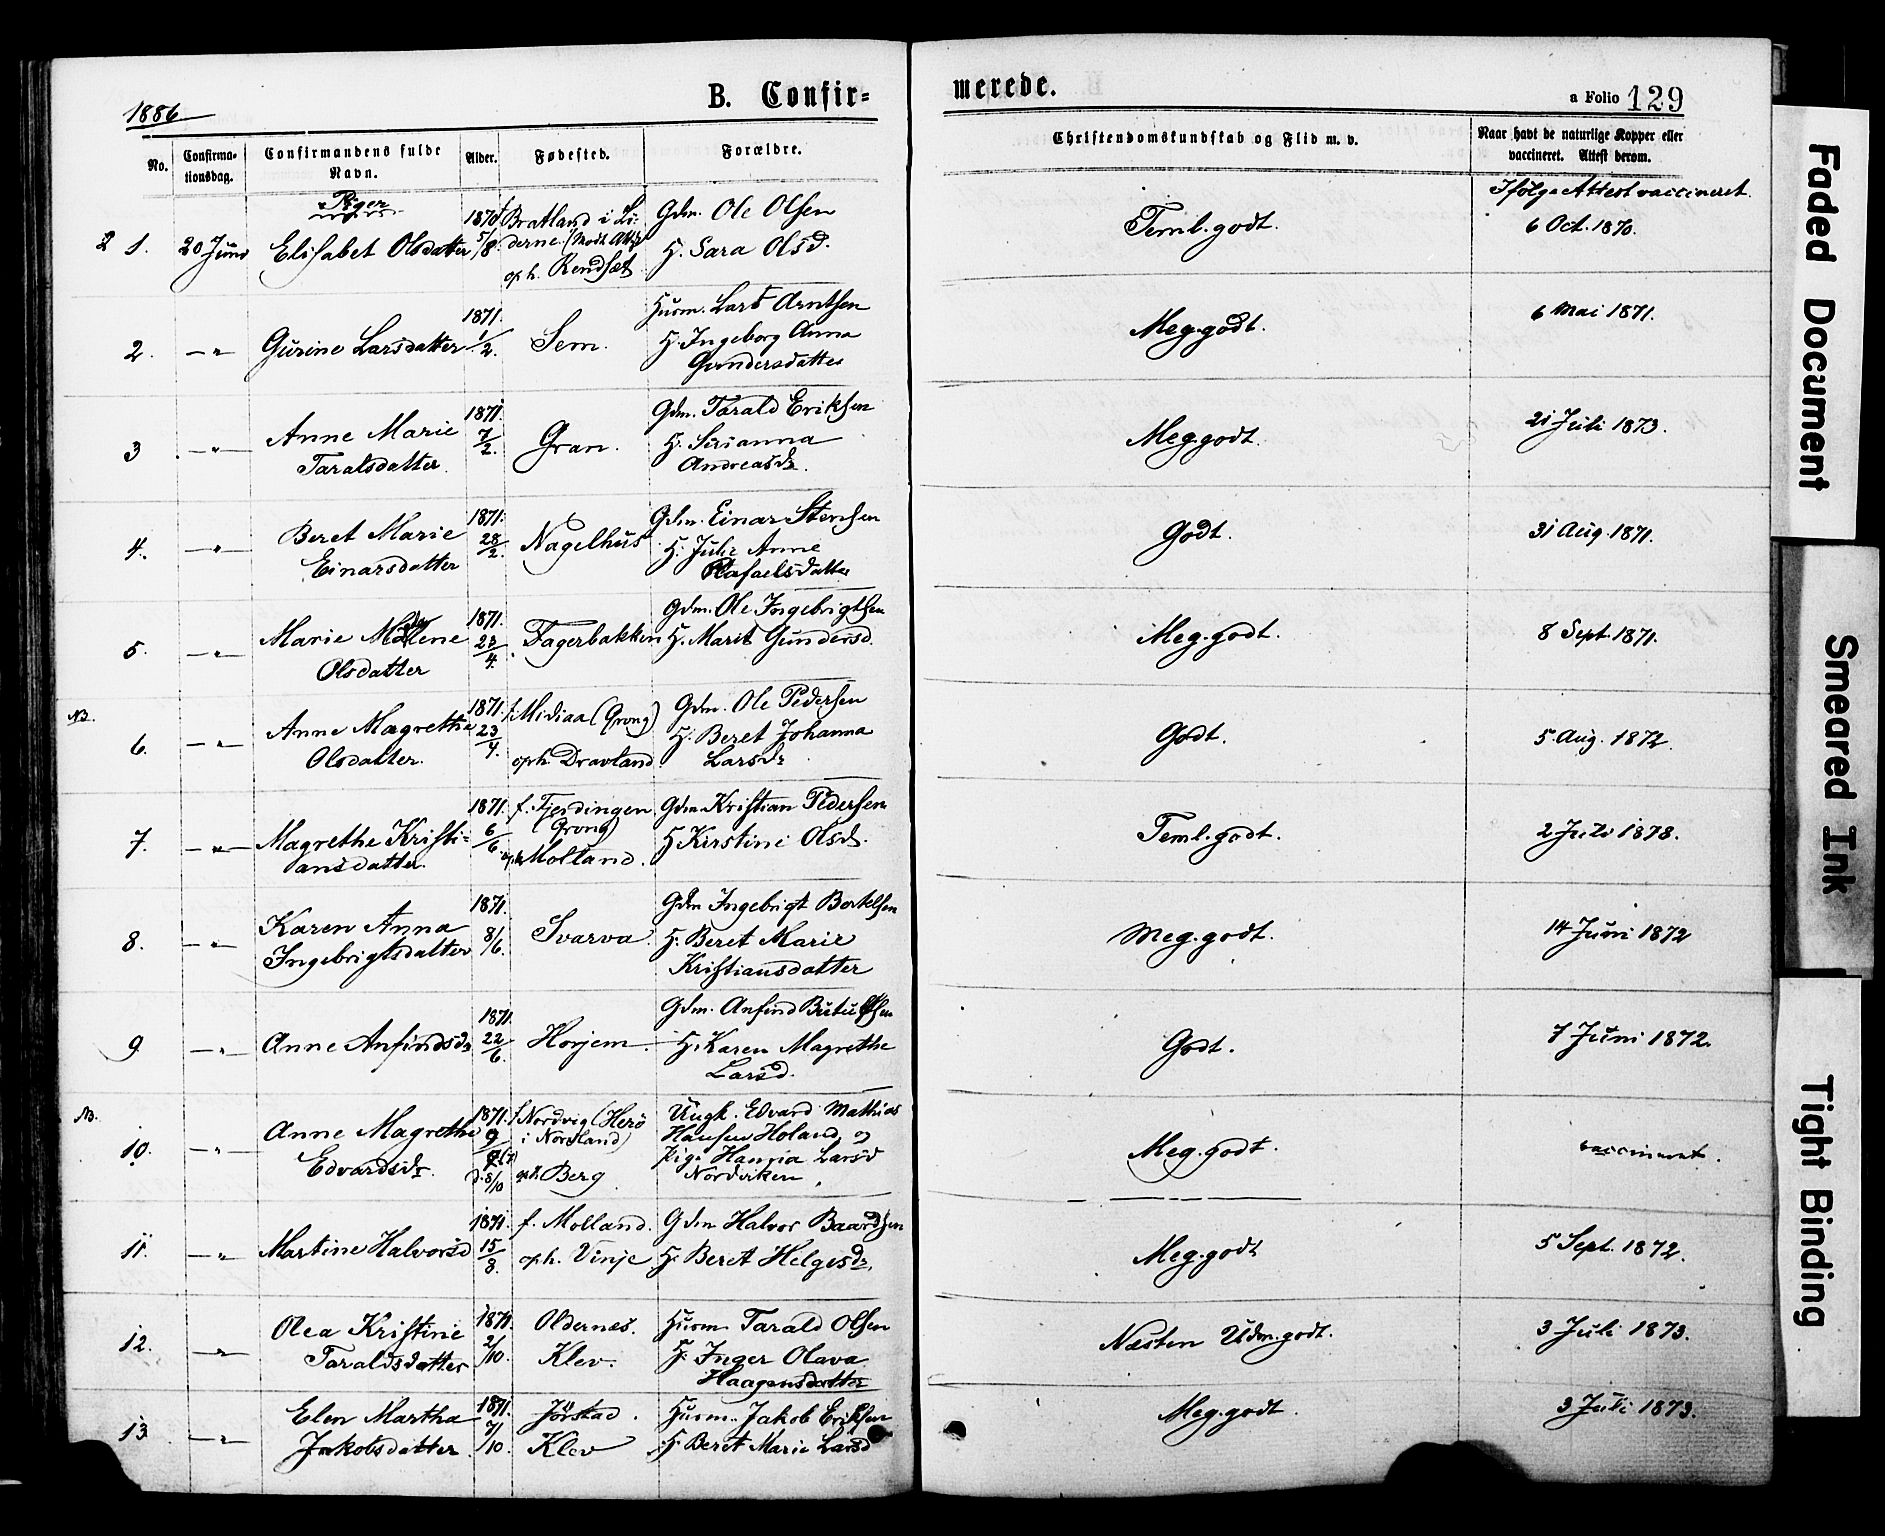 1886
B. Confir=
merede.
a Folio 129
No.
Confirma-
tionsdag.
Confirmandens fulde
Navn.
Alder.
Fødested.
Forældre.
Christendomskundskab og Flid m. v.
Naar havt de naturlige Kopper eller
vaccineret. Attest derom.
Piger
2 1. 20 Juni Elisabet Olsdatter 1870 5/8
Bratland i Li-
derne
oph. Rendsæt
Gdm. Ole Olsen
H. Sara Olsd.
Teml. godt.
Ifølge Attest vaccineret
6 Oct. 1870.
2. —"— Gurine Larsdatter 1871. 1/2.
Sem.
Husm. Lars Arntsen
H. Ingeborg Anna
Gundersdatter
Meg. godt.
6 Mai 1871.
3 —"— Anne Marie
Taraldsdatter. 1871. 7/2.
Gran.
Gdm. Tarald Eriksen
H. Serianna
Andreasdr.
Meg. godt.
21 Juli 1873.
4. —"— Beret Marie
Einarsdatter 1871. 28/2.
Nagelhus
Gdm. Einar Stensen
H. Juli Anne
Rafaelsdatter
Godt.
31 Aug. 1871.
5. —"— Marie
Olsdatter 1871. 23/4.
Fagerbakken
Gdm. Ole Ingebrigtsen
H. Marit Gundersd.
Meg. godt.
8 Sept. 1871.
NB.
6. —"— Anne Magrethe
Olsdatter. 1871. 23/4.
f. Midiaa (Grong)
oph. Dravland
Gdm. Ole Pedersen
H. Beret Johanna
Larsdr
Godt.
5 Aug. 1872.
7. —"— Magrethe Kristi-
ansdatter. 1871. 6/6.
f. Fjerdingen
(Grong)
oph. Molland.
Gdm. Kristian Pedersen
H. Kirstine Olsd.
Teml. godt.
2 Juli 1878.
8. —"— Karen Anna
Ingebrigtsdatter 1871. 8/6.
Svarva
Gdm Ingebrigt Bertelsen
H. Beret Marie
Kristiansdatter
Meg. godt.
14 Juni 1872
9 —"— Anne Anfindsdr 1871. 22/6.
Horjem.
Gdm. Anfind
H. Karen Magrethe
Larsd.
Godt.
7 Juni 1872.
NB.
10. —"— Anne Magrethe
Edvardsdr. 1871.
d. 8/10
f. Nordvig (Herø
i Nordland)
oph. Berg
Ungk. Edvard Mathias
Hansen Holand og
Pige Hansia Larsd
Nordviken
Meg. godt.
vaccineret.
11. —"— Martine Halvorsd 1871. 15/8.
f. Molland.
oph. Vinje
Gdm Halvor Baardsen
H. Beret Helgesdr.
Meg. godt
5 Sept. 1872.
12. —"— Olea Kristine
Taraldsdatter 1871. 2/10.
Oldernæs.
Klev.
Husm. Tarald Olsen
H. Inger Olava
Haagensdatter
Næsten Udm. godt.
3 Juli 1873.
13 —"— Elen Martha
Jakobsdatter 1871. 7/10.
Jørstad.
Klev
Husm. Jakob Eriksen
H. Beret Marie Larsd
Meg. godt
3 Juli 1873.
Faded Document
Smeared Ink
Tight Binding